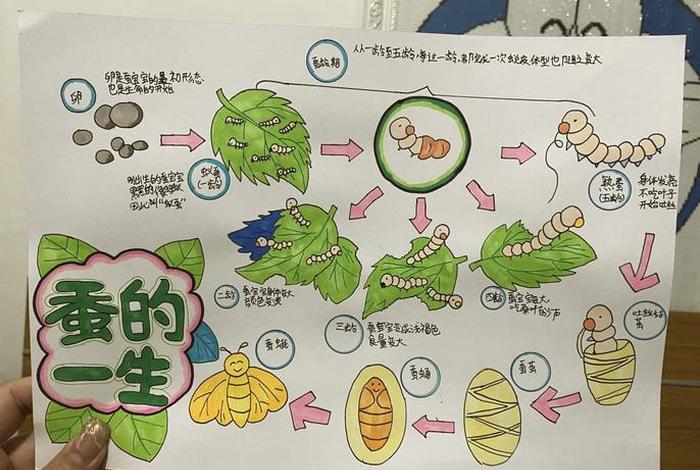 蚕龄期
从一龄至五龄,每过一龄,都完成一次蜕皮,体型也随之变大
卵
卵是蚕宝宝的最初形态
也是生命的开始
蚁蚕
(一龄)
刚出生的蚕宝宝
因此叫“蚁蚕”
熟蚕
(五龄)
身体发亮
不吃叶子
开始吐丝
二龄
蚕宝宝身体变大
颜色变浅
三龄
食量变大
四龄
蚕宝宝变大,
吃桑叶有沙沙声
吐丝结
茧
蚕的
一生
蚕蛾
蚕蛹
蚕茧